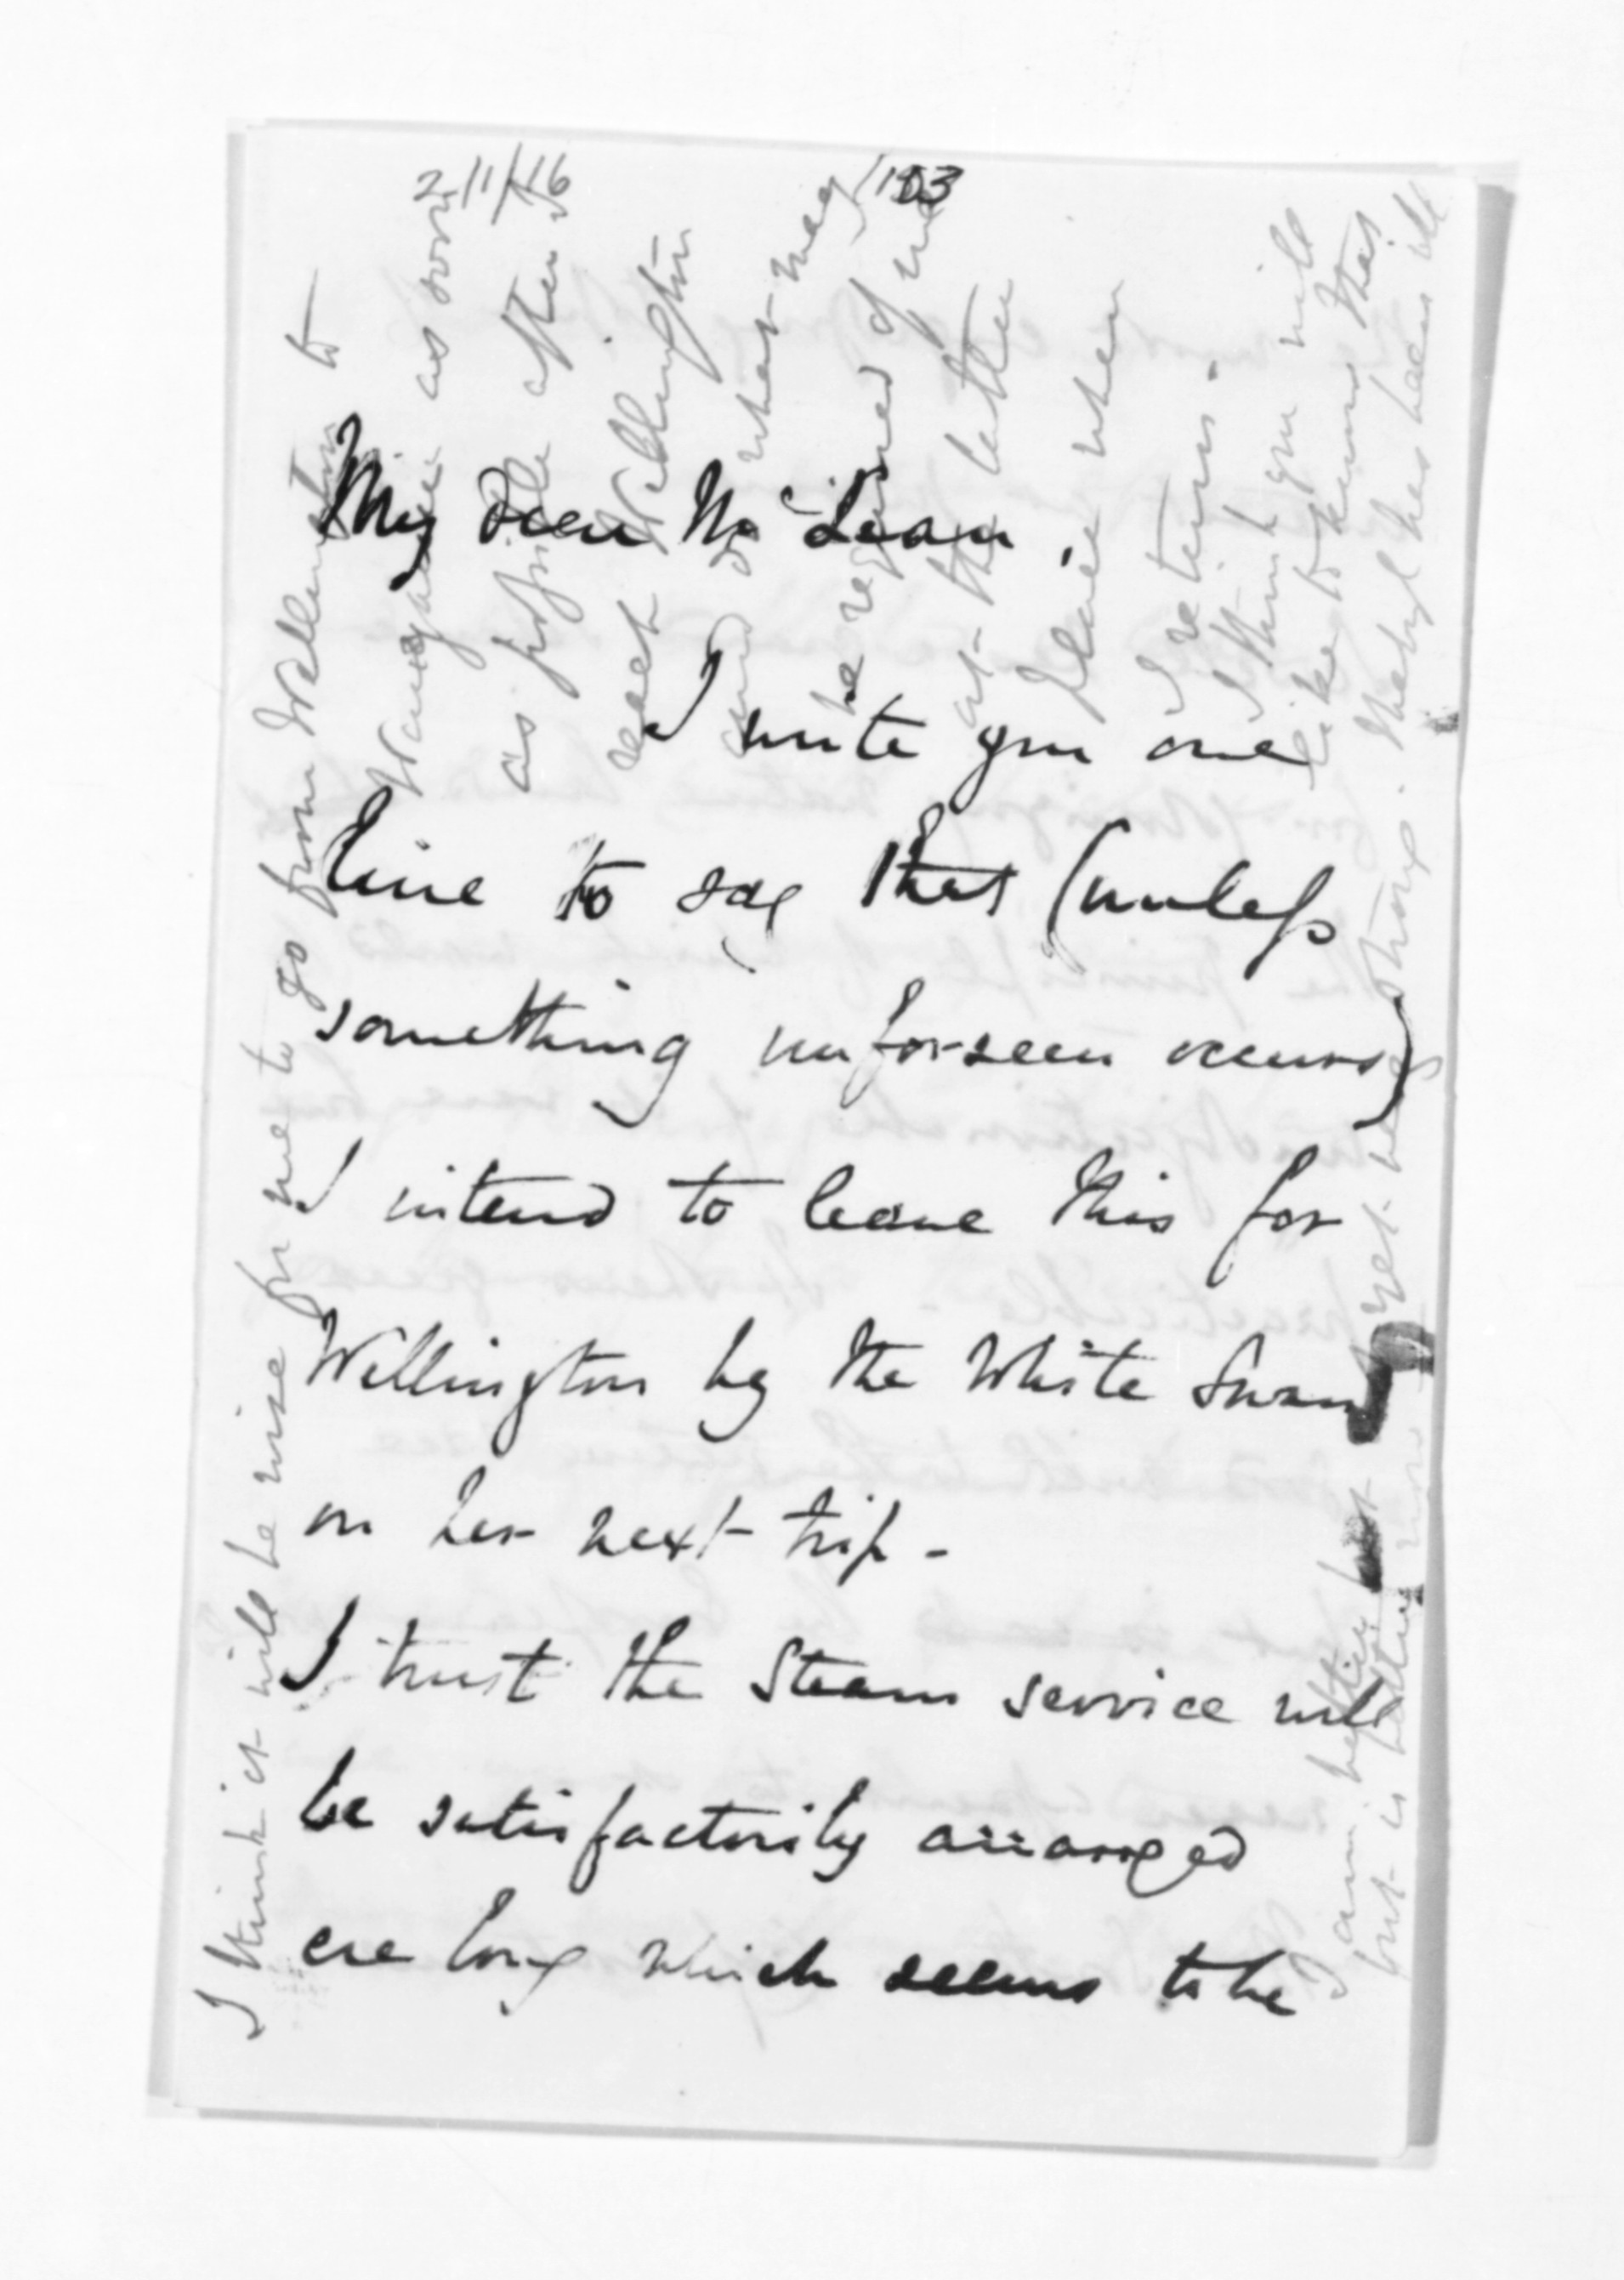 2 11/16
1153
My dear McLean,
I write you one
line to say that (unless
something unforseen occurs)
I intend to leave this for
Wellington by the White Swan
on her next trip -
I trust the Steam service will
be satisfactorily arranged
ere long which seems to be
I think it will be wise for me to go from Wellington to
Wanganui as soon
as possible after I
reach Wellington
and do what may
be required of me
at the latter
place when
I return -
I think you will
like to know that
Mabyl has been ill
but is better now
I am better but not yet very strong.